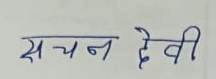 सचन देवी